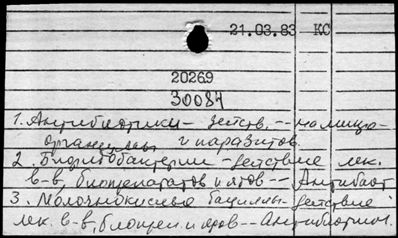 21.03.83 КС
20269
30084
1. Антибиотики - действ. -- на микро-
организмы и паразитов.
2. Бифидобактерии - действие лек.
в-в, биопрепаратов и ядов -- Антибиот
3. Молочнокислые бациллы - действие
лек. в-в, биопреп. и ядов -- Антибиотики.